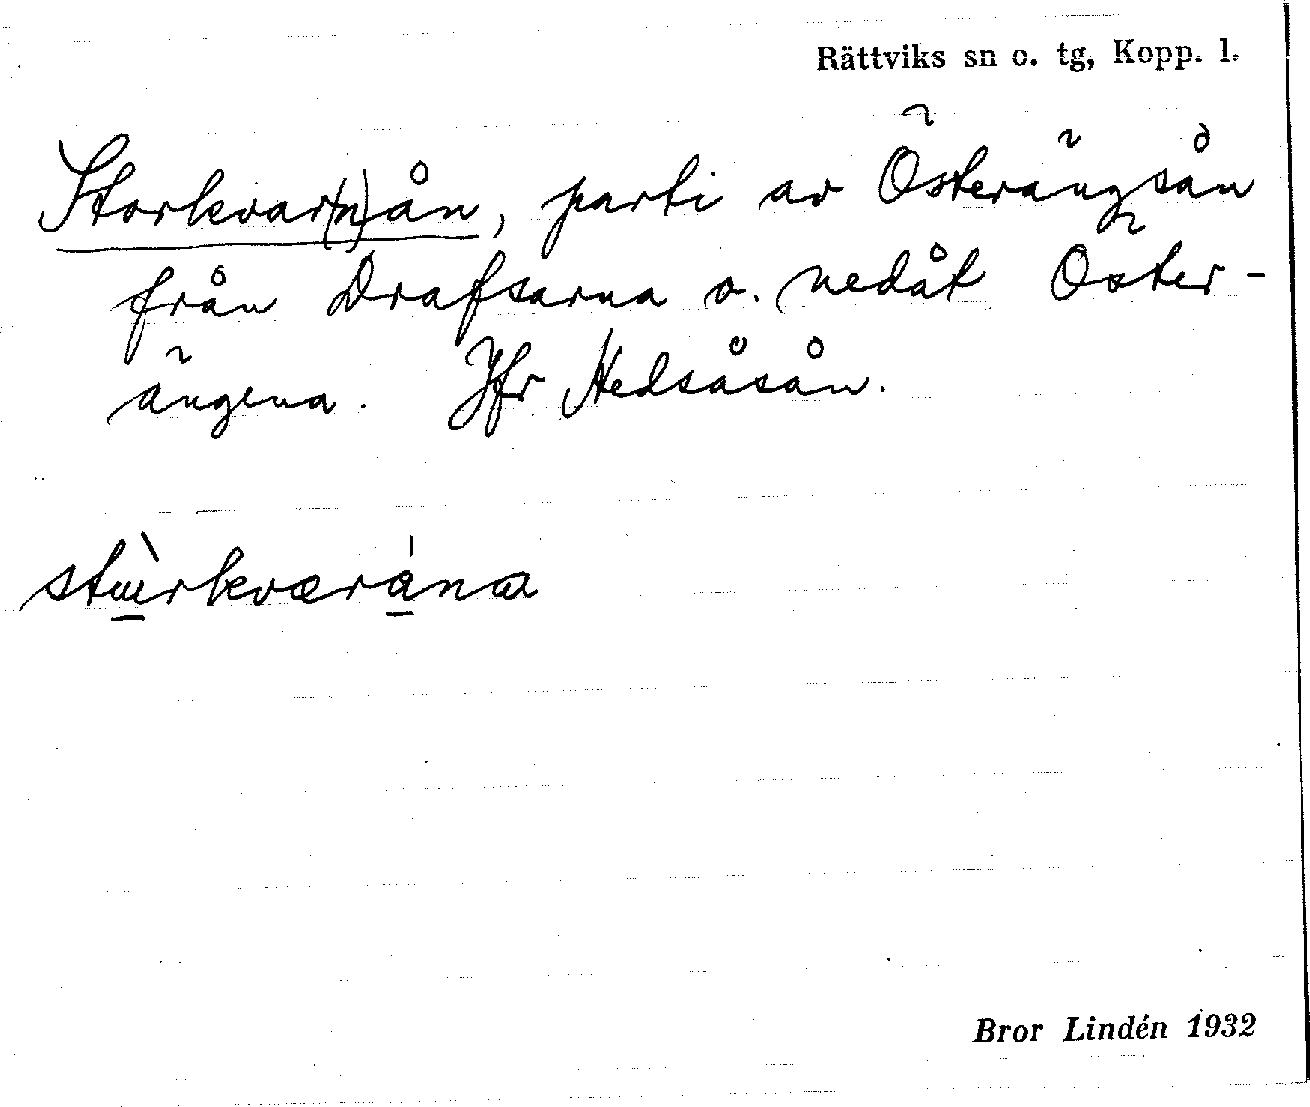 Rättviks sn o. tg, Kopp. l.
Storkvar(n)ån, parti av Österängsån
från Drafsarna o. nedåt Öster-
ängena. Jfr Hedsåsån.
stùrkværána
Bror Lindén 1932